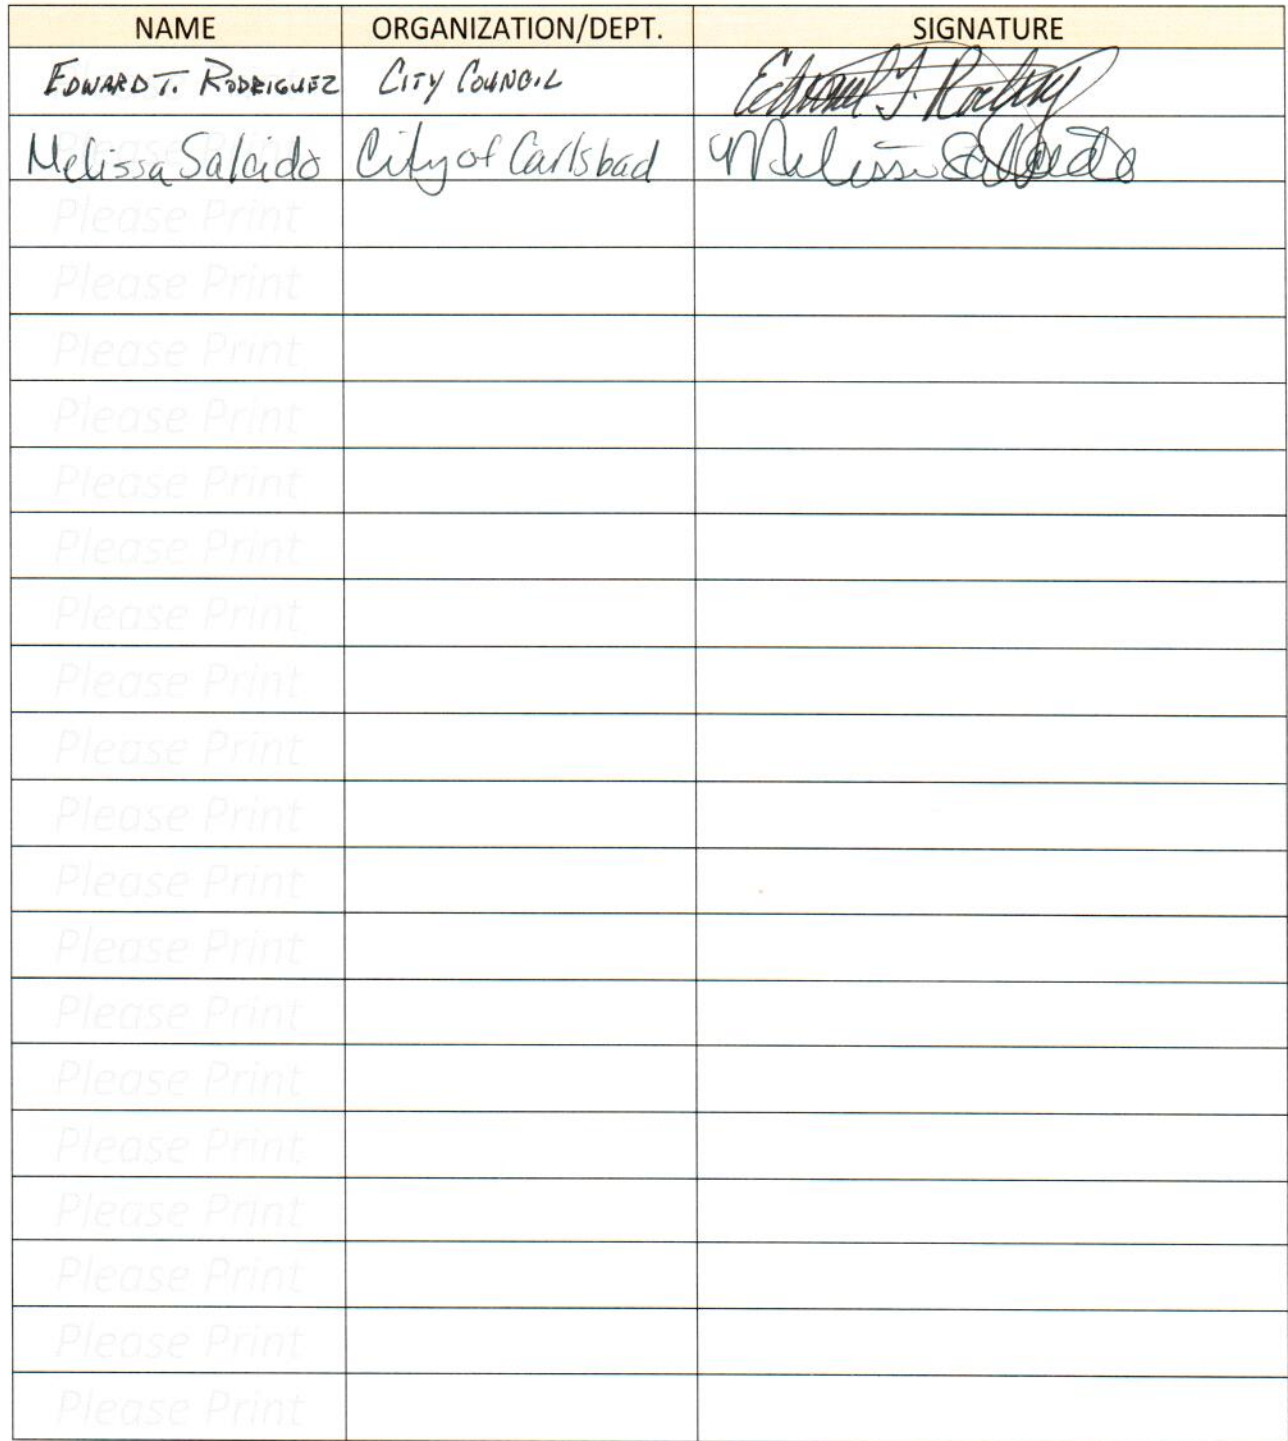 NAME ORGANIZATION/DEPT. SIGNATURE
EDWARD T. RODRIGUEZ CITY COUNCIL Edward T. Rodriguez
Melissa Salcido City of Carlsbad Melissa Salcido
Please Print
Please Print
Please Print
Please Print
Please Print
Please Print
Please Print
Please Print
Please Print
Please Print
Please Print
Please Print
Please Print
Please Print
Please Print
Please Print
Please Print
Please Print
Please Print